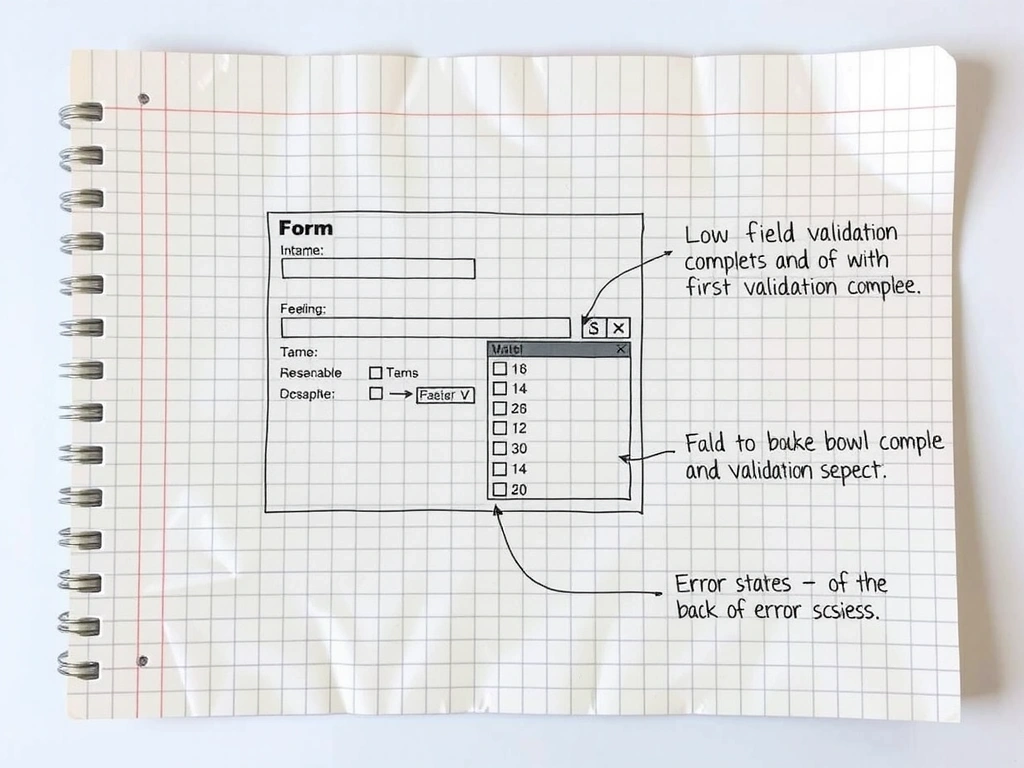 Form
Intame:
Feeling:
S X
Tame:
Resenable Tams
X
16
14
26
12
30
14
20
Low field validation
complets and of with
first validation complee.
Fald to bake bowl comple
and validation sepect.
Error states – of the
back of error scsiess.